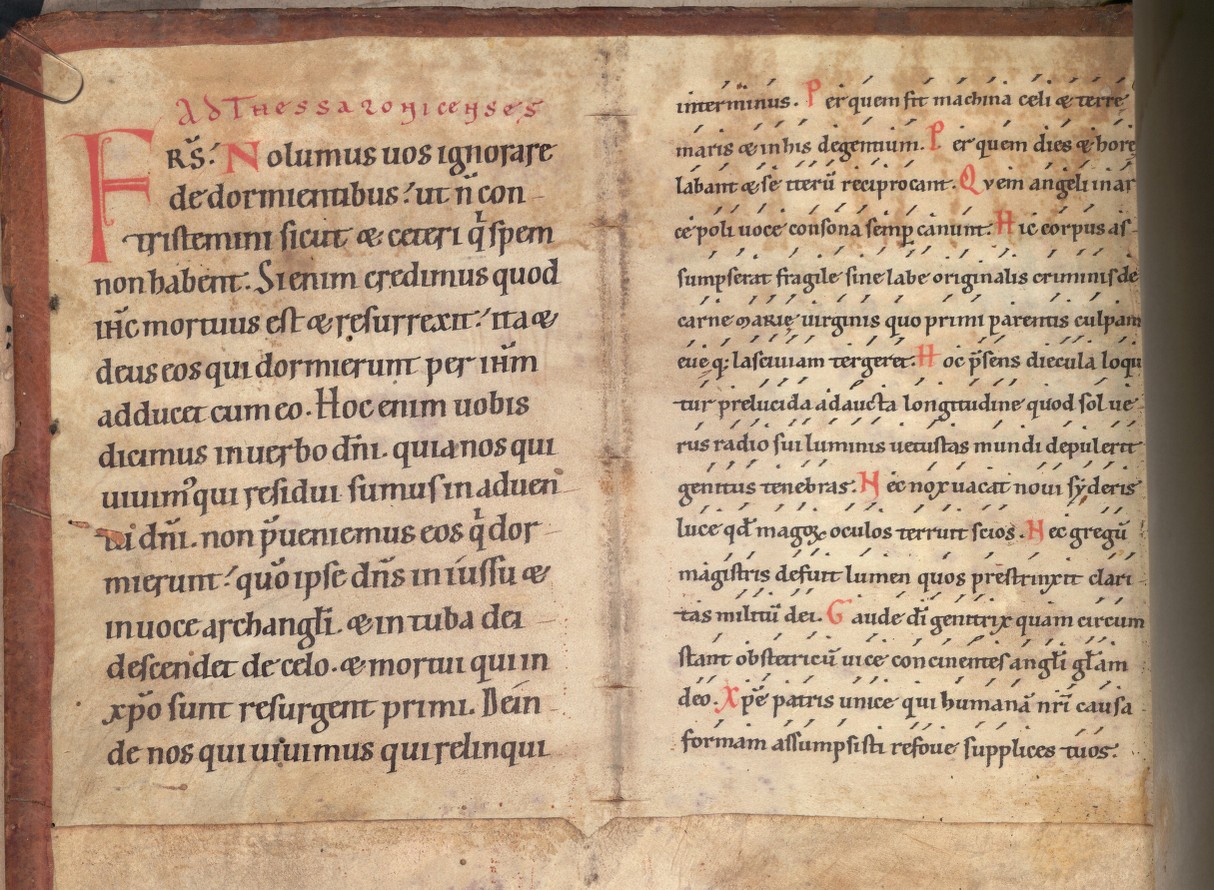 Ad Thessalonicenses
FRS̄. Nolumus uos ignorare
de dormientibus. ut n̄ con
tristemini sicut & ceteri q̇ spem
non habent. Si enim credimus quod
ih̄c mortuus est & resurrexit. ita &
deus eos qui dormierunt per ih̄m
adducet cum eo. Hoc enim uobis
dicimus in uerbo dn̄i. quia nos qui
uiuim᷒ qui residui sumus in aduen
tū dn̄i. non p̄ueniemus eos q̇ dor
mierunt. quō ipse dn̄s in iussu &
in uoce archangłi. & in tuba dei
descendet de celo. & mortui qui in
xp̄o sunt resurgent primi. Dein
de nos qui uiuimus qui relinqui
interminus. Per quem fit machina celi & terre
maris & in his degentium. Per quem dies & hore
labant & se iterū reciprocant. Quem angeli in ar
ce poli uoce consona semp canunt. Hic corpus as
sumpserat fragile sine labe originalis criminis de
carne MARIE uirginis quo primi parentis culpam
eue q; lasciuiam tergeret. Hoc p̄sens diecula loqui
tur prelucida adaucta longitudine quod sol ue
rus radio sui luminis uetustas mundi depulerit
genitus tenebras. Nec nox uacat noui syderis
luce qd̄ magoꝝ oculos terruit scios. Nec gregū
magistris defuit lumen quos prestrinxit clari
tas militū dei. Gaude dī genitrix quam circum
stant obstetricū uice concinentes angłi głam
deo. Xpē patris unice qui humanā nrī causa
formam assumpsisti refoue supplices tuos.